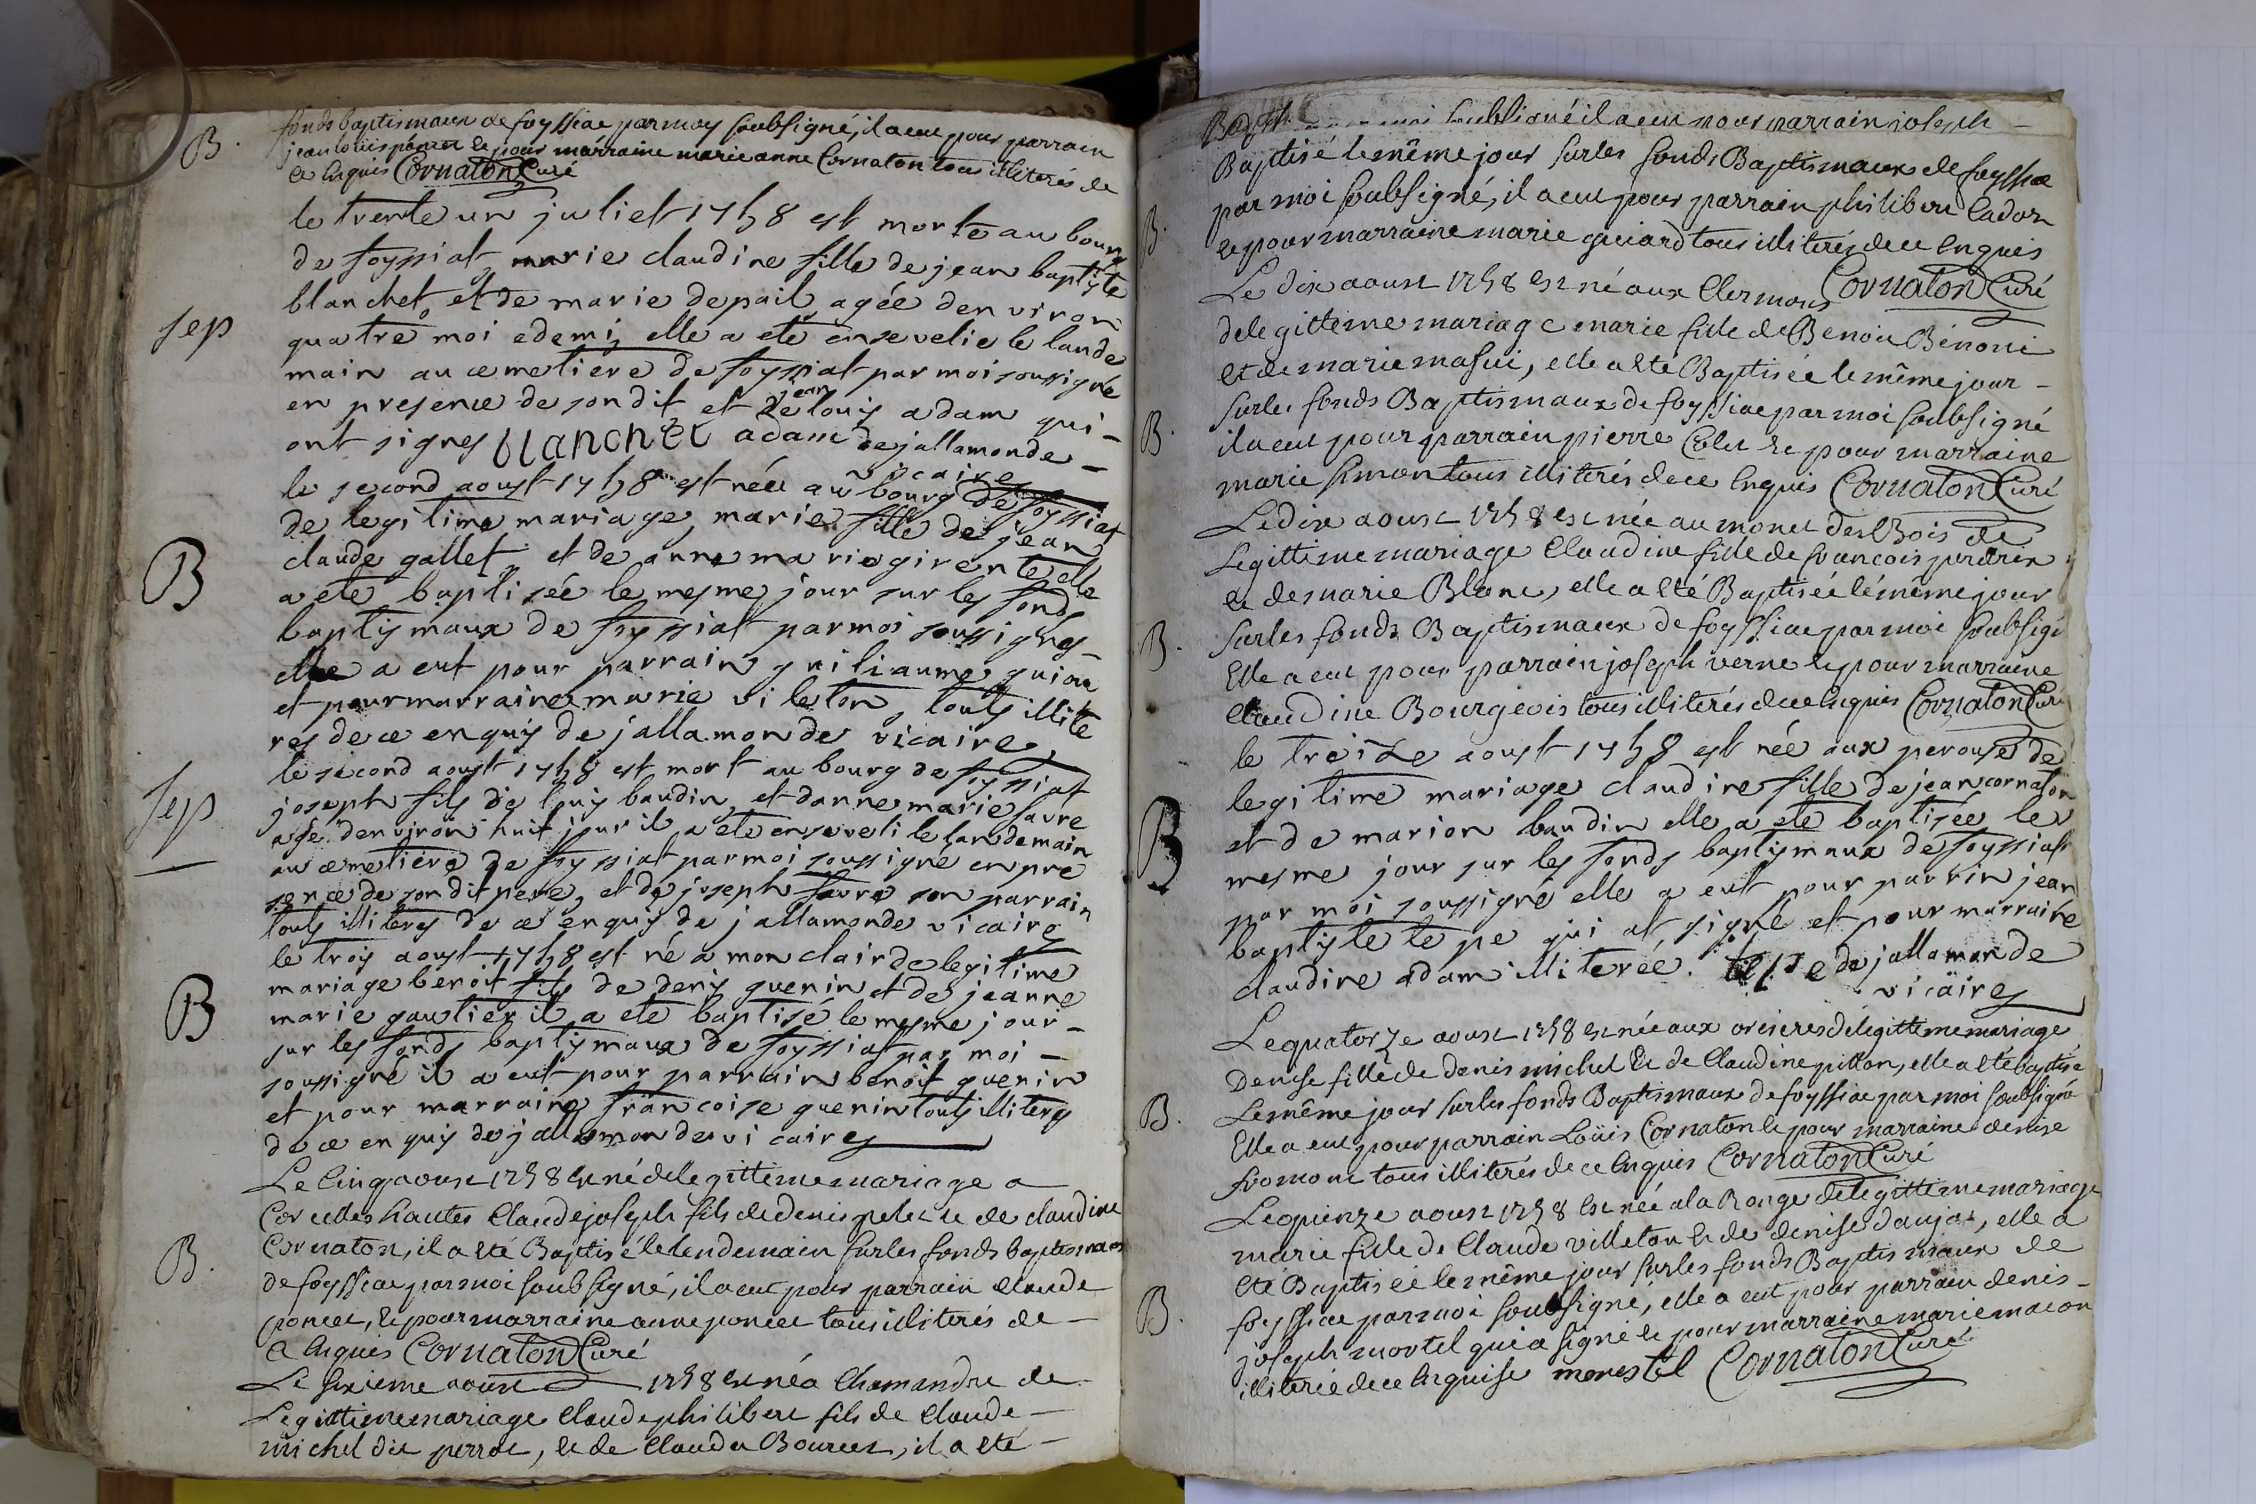 B.
fonds baptismaux de foyssiac par moy soubsigné, il a eut pour parrain
jean louis poncet et pour marraine marie anne Cornaton tous illiterés de
ce Enquis Cornaton Curé
le trente un juliet 1758 est morte au bourg
de foyssiat marie claudine fille de jean baptiste
blanchet et de marie depail agée denviron
sep
quatre moi edemi, elle a eté ensevelie le lande
main au cemetiere de foyssiat par moi soussigné
en presence de sondit et de jean louis adam qui -
ont signes blanchet adam dejallamonde -
vicaire
le second aoust 1758 est née au bourg de foyssiat
de legitime mariage, marie fille de jean
B
claude gallet et de anne marie girente elle
a eté baptisée le mesme jour sur les fonds
baptismaux de foyssiat par moi soussignes
elle a eut pour parrain guiliaume guion
et pour marraine marie vileton, touts illite
res de ce enquis de jallamonde vicaire
le second aoust 1758 est mort au bourg de foyssiat
Sep
joseph fils de louis baudin et danne marie favre
age denviron huit jour il a eté enseveli le landemain
au cemetiere de foyssiat par moi soussigné en pre
sence de son dit pere, et de joseph favre son parrain
touts illiteres de ce enquis de jallamonde vicaire
le trois aoust 1758 est né a mon clair de legitime
B
mariage benoit fils de denis guerin et de jeanne
marie gautier il a eté baptisé le mesme jour -
sur les fonds baptismaux de foyssiat par moi -
soussigné il a eut pour parrain benoit guerin
et pour marraine francoise guerin touts illiteres
de ce enquis de jallamonde vicaire
Le Cinq aoust 1758 Est né de legittime mariage a
Corcelles hautes Claude joseph fils de denis pelez et de claudine
B.
Cornaton, il a eté Baptisé le lendemain sur les fonds baptismaux
de foyssiac par moi soubsigné, il a eut pour parrain claude
poncet, et pour marraine anne poncet tous illiterés de -
ce Enquis Cornaton Curé
Le sixieme aoust 1758 est né a Chamandre de
Legittime mariage Claude philibert fils de Claude -
michel dit perrot, et de Claudia Bouret, il a eté -
moi soubsigné il a eu pour parrain joseph -
Baptisé le même jour sur les fonds Baptismaux de foyssiac
B.
par moi soubsigné, il a eut pour parrain philibert Cador
et pour marraine marie guiard tous illiterés de ce Enquis
Cornaton Curé
Le dix aoust 1758 est né aux Clermons
de legittime mariage marie fille de Benoit Bénoni
et de marie masui, elle a eté Baptisée le même jour -
B.
sur les fonds Baptismaux de foyssiac par moi soubsigné
il a eut pour parrain pierre Colet et pour marraine
marie simon tous illiterés de ce Enquis Cornaton Curé
Le dix aoust 1758 est née au monet des Bois de
Legittime mariage Claudine fille de francois perdrix
et de marie Blanc, elle a eté Baptisée le même jour
B.
sur les fonds Baptismaux de foyssiac par moi soubsigé
Elle a eut pour parrain joseph verne et pour marraine
Claudine Bourgeois tous illiterés de ce Enquis Cornaton Curé
le treize aoust 1758 est née aux perouse de
legitime mariage claudine fille de jean cornaton
B
et de marion baudin elle a eté baptisée le
mesme jour sur les fonds baptismaux de foyssiat
par moi soussigné elle a eut pour parrin jean
baptiste te pe qui at signé et pour marraine
claudine adam illiterée. de jallamonde
vicaire
Le quatorze aoust 1758 est née aux orcieres de legittime mariage
Denise fille de denis michel Et de Claudine pillon, elle a eté baptisé
B.
Le même jour sur les fonds Baptismaux de foyssiac par moi soubsigné
Elle a eut pour parrain Loüis Cornaton et pour marraine denise
fromont tous illiterés de ce Enquis Cornaton Curé
Le quinze aoust 1758 Est née a la Ronge de legittime mariage
marie fille de Claude villeton et de denise daujat, elle a
eté Baptisée le même jour sur les fonds Baptismaux de
B.
foyssiac par moi soubsigné, elle a eut pour parrain denis -
joseph mortel qui a signé et pour marraine marie macon
illiterée de ce Enquise morestel Cornaton Curé